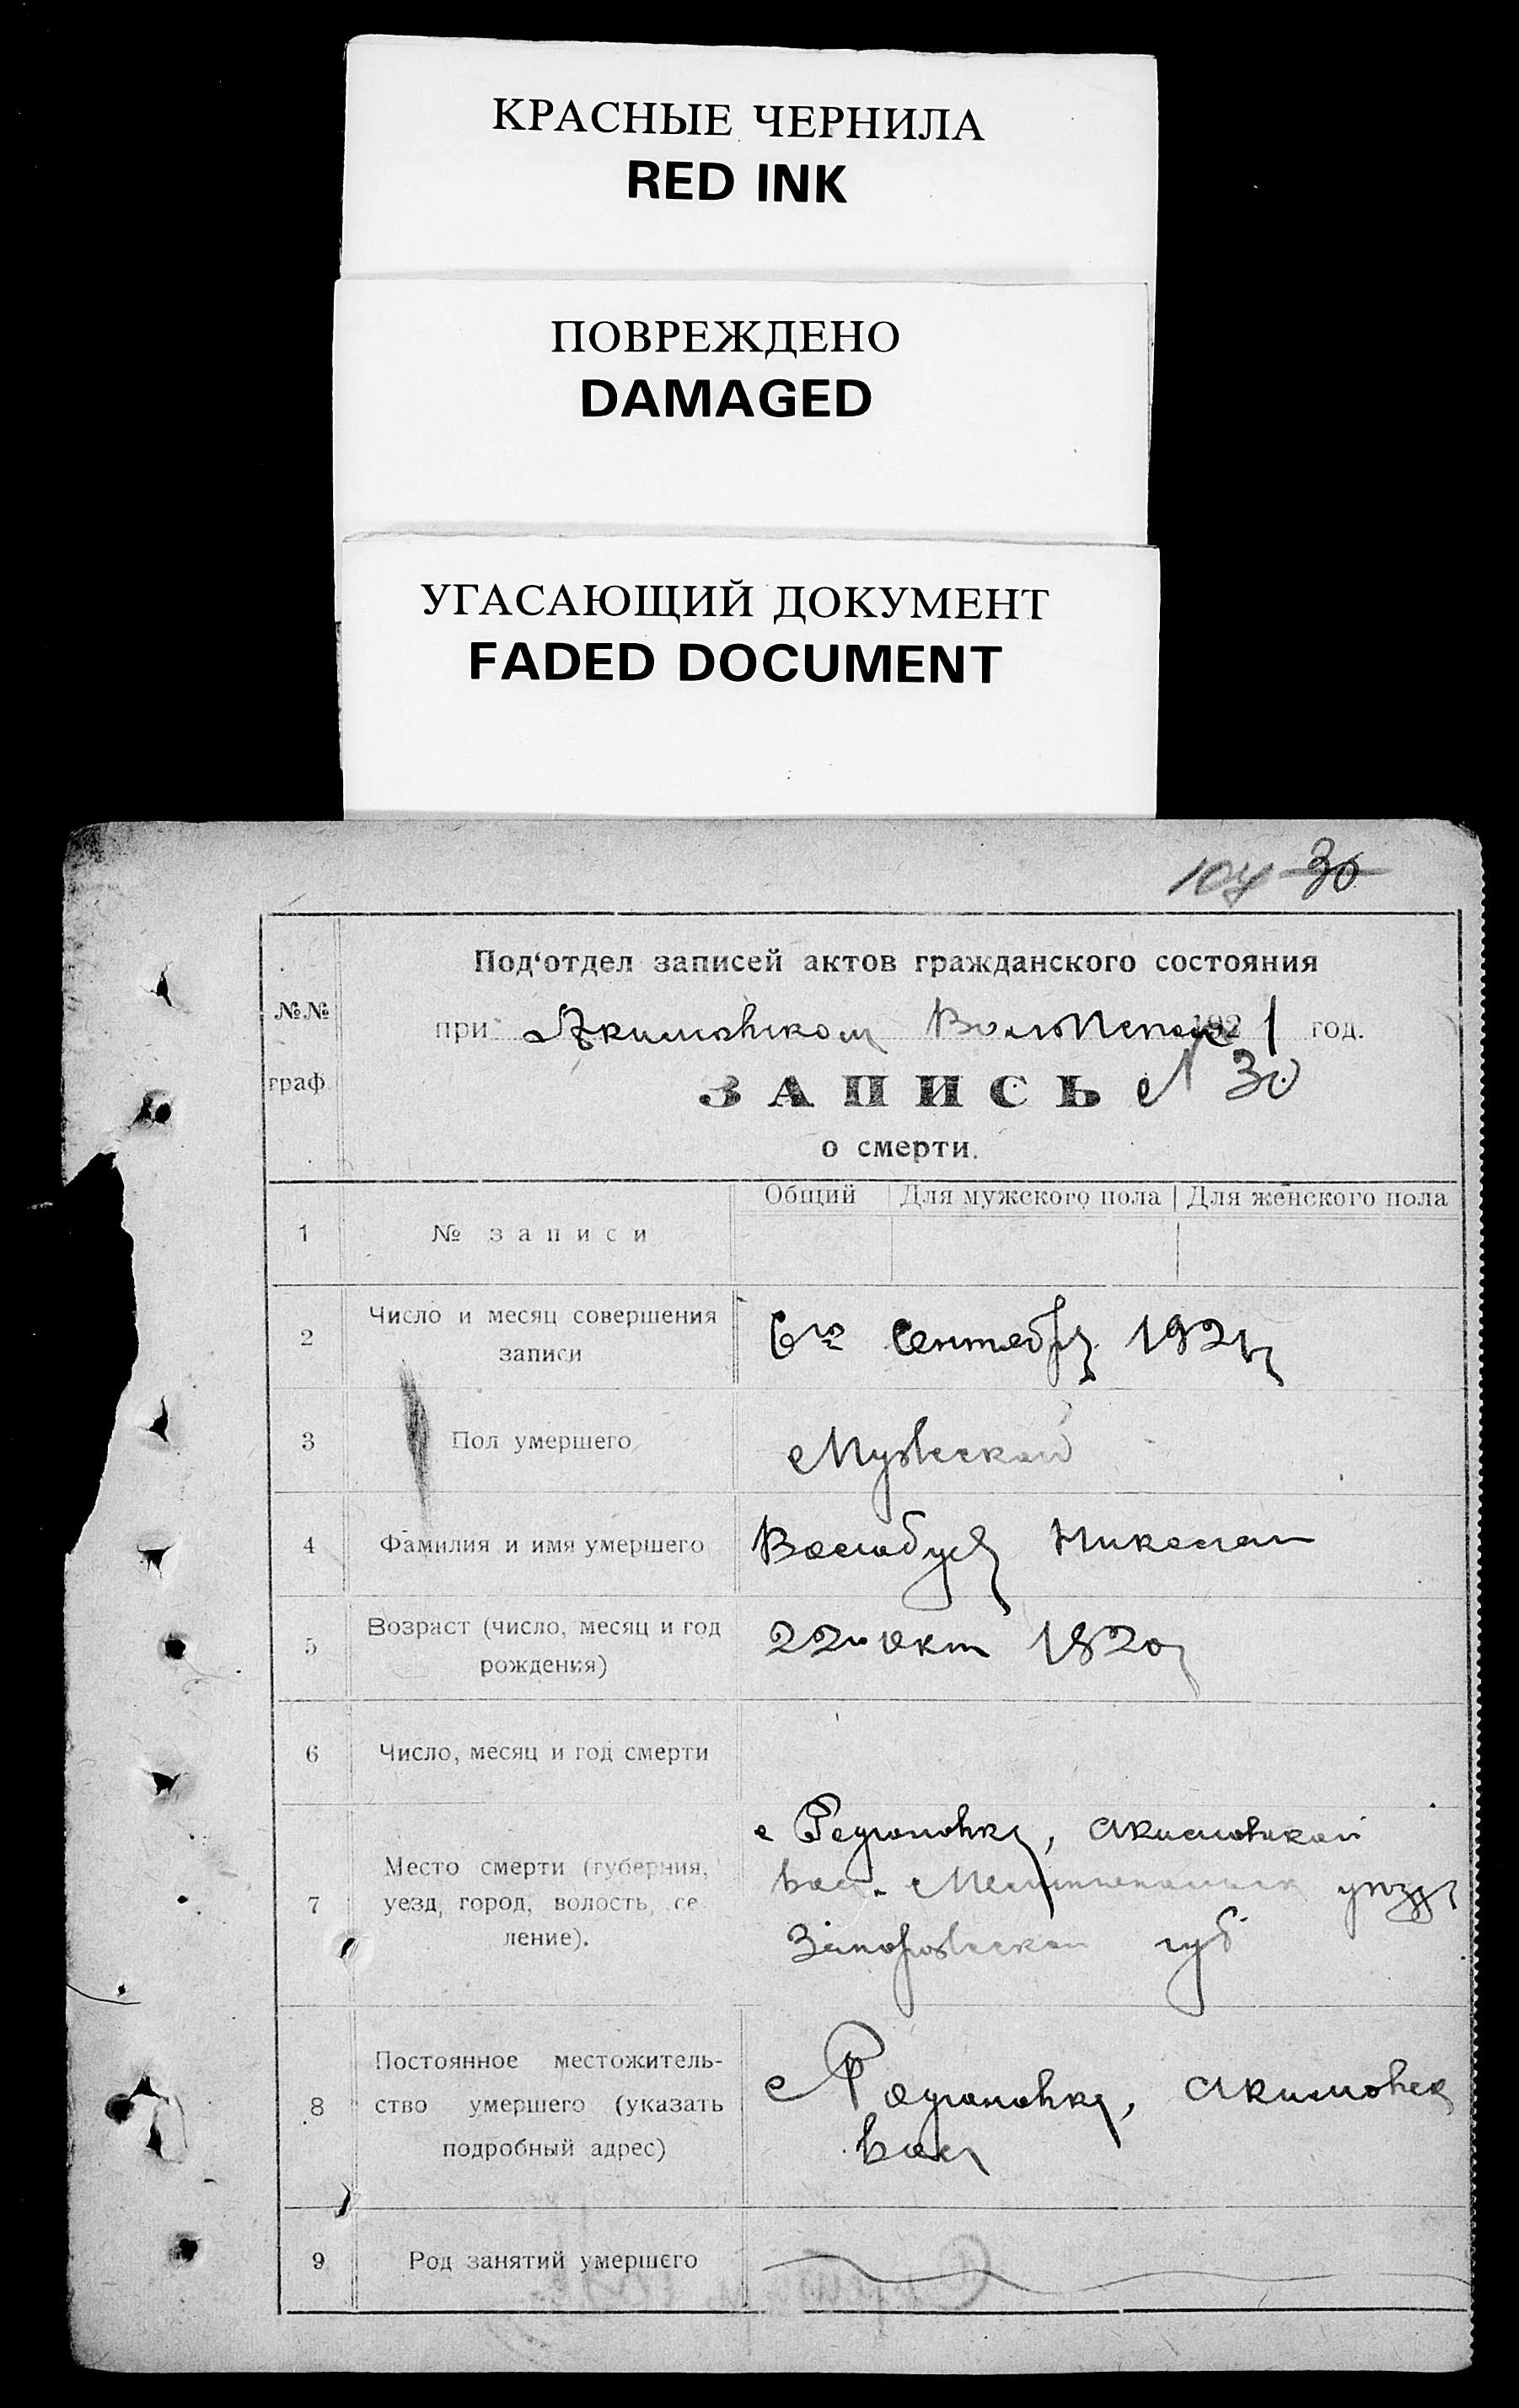 КРАСНЫЕ ЧЕРНИЛА
RED INK
ПОВРЕЖДЕНО
DAMAGED
УГАСАЮЩИЙ ДОКУМЕНТ
FADED DOCUMENT
104 30
№№ граф
Под‘отдел записей актов гражданского состояния
при Акимовском 1921 год.
ЗАПИСЬ № 30
о смерти.
Общий Для мужского пола Для женского пола
1 № записи
2 Число и месяц совершения
записи
6го Сентября 1921г
3 Пол умершего Мужской
4 Фамилия и имя умершего Николай
5 Возраст (число, месяц и год
рождения)
22го окт 1820г
6 Число, месяц и год смерти
7 Место смерти (губерния,
уезд, город, волость, се
ление).
с Родионовка, Акимовской
вол. Мелитопольск уезда
Запорожской губ
8 Постоянное местожитель-
ство умершего (указать
подробный адрес)
с Родионовка, Акимовск
вол
9 Род занятий умершего